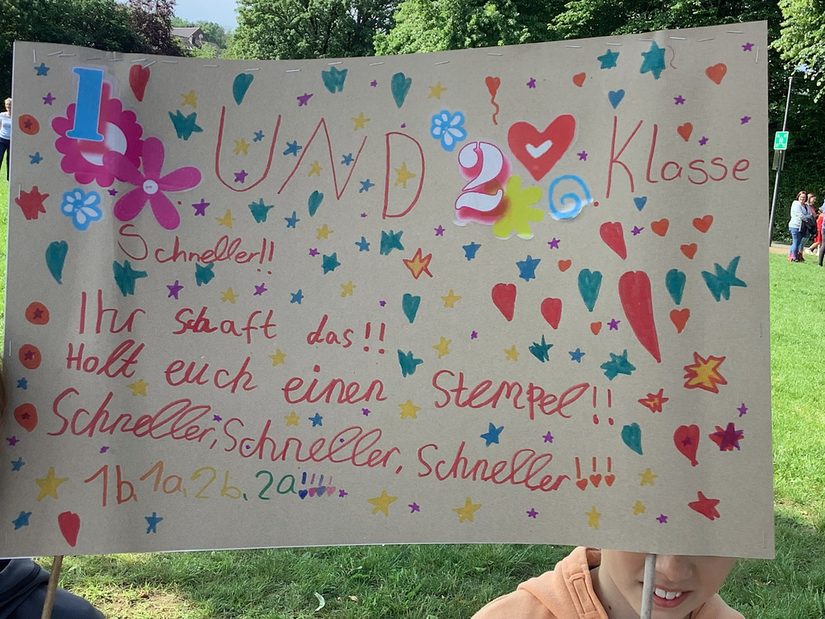 1 UND 2 Klasse
Schneller!!
Ihr schaft das!!
Holt euch einen Stempel!!
Schneller, Schneller, Schneller!!!
1b, 1a, 2b, 2a!!!!